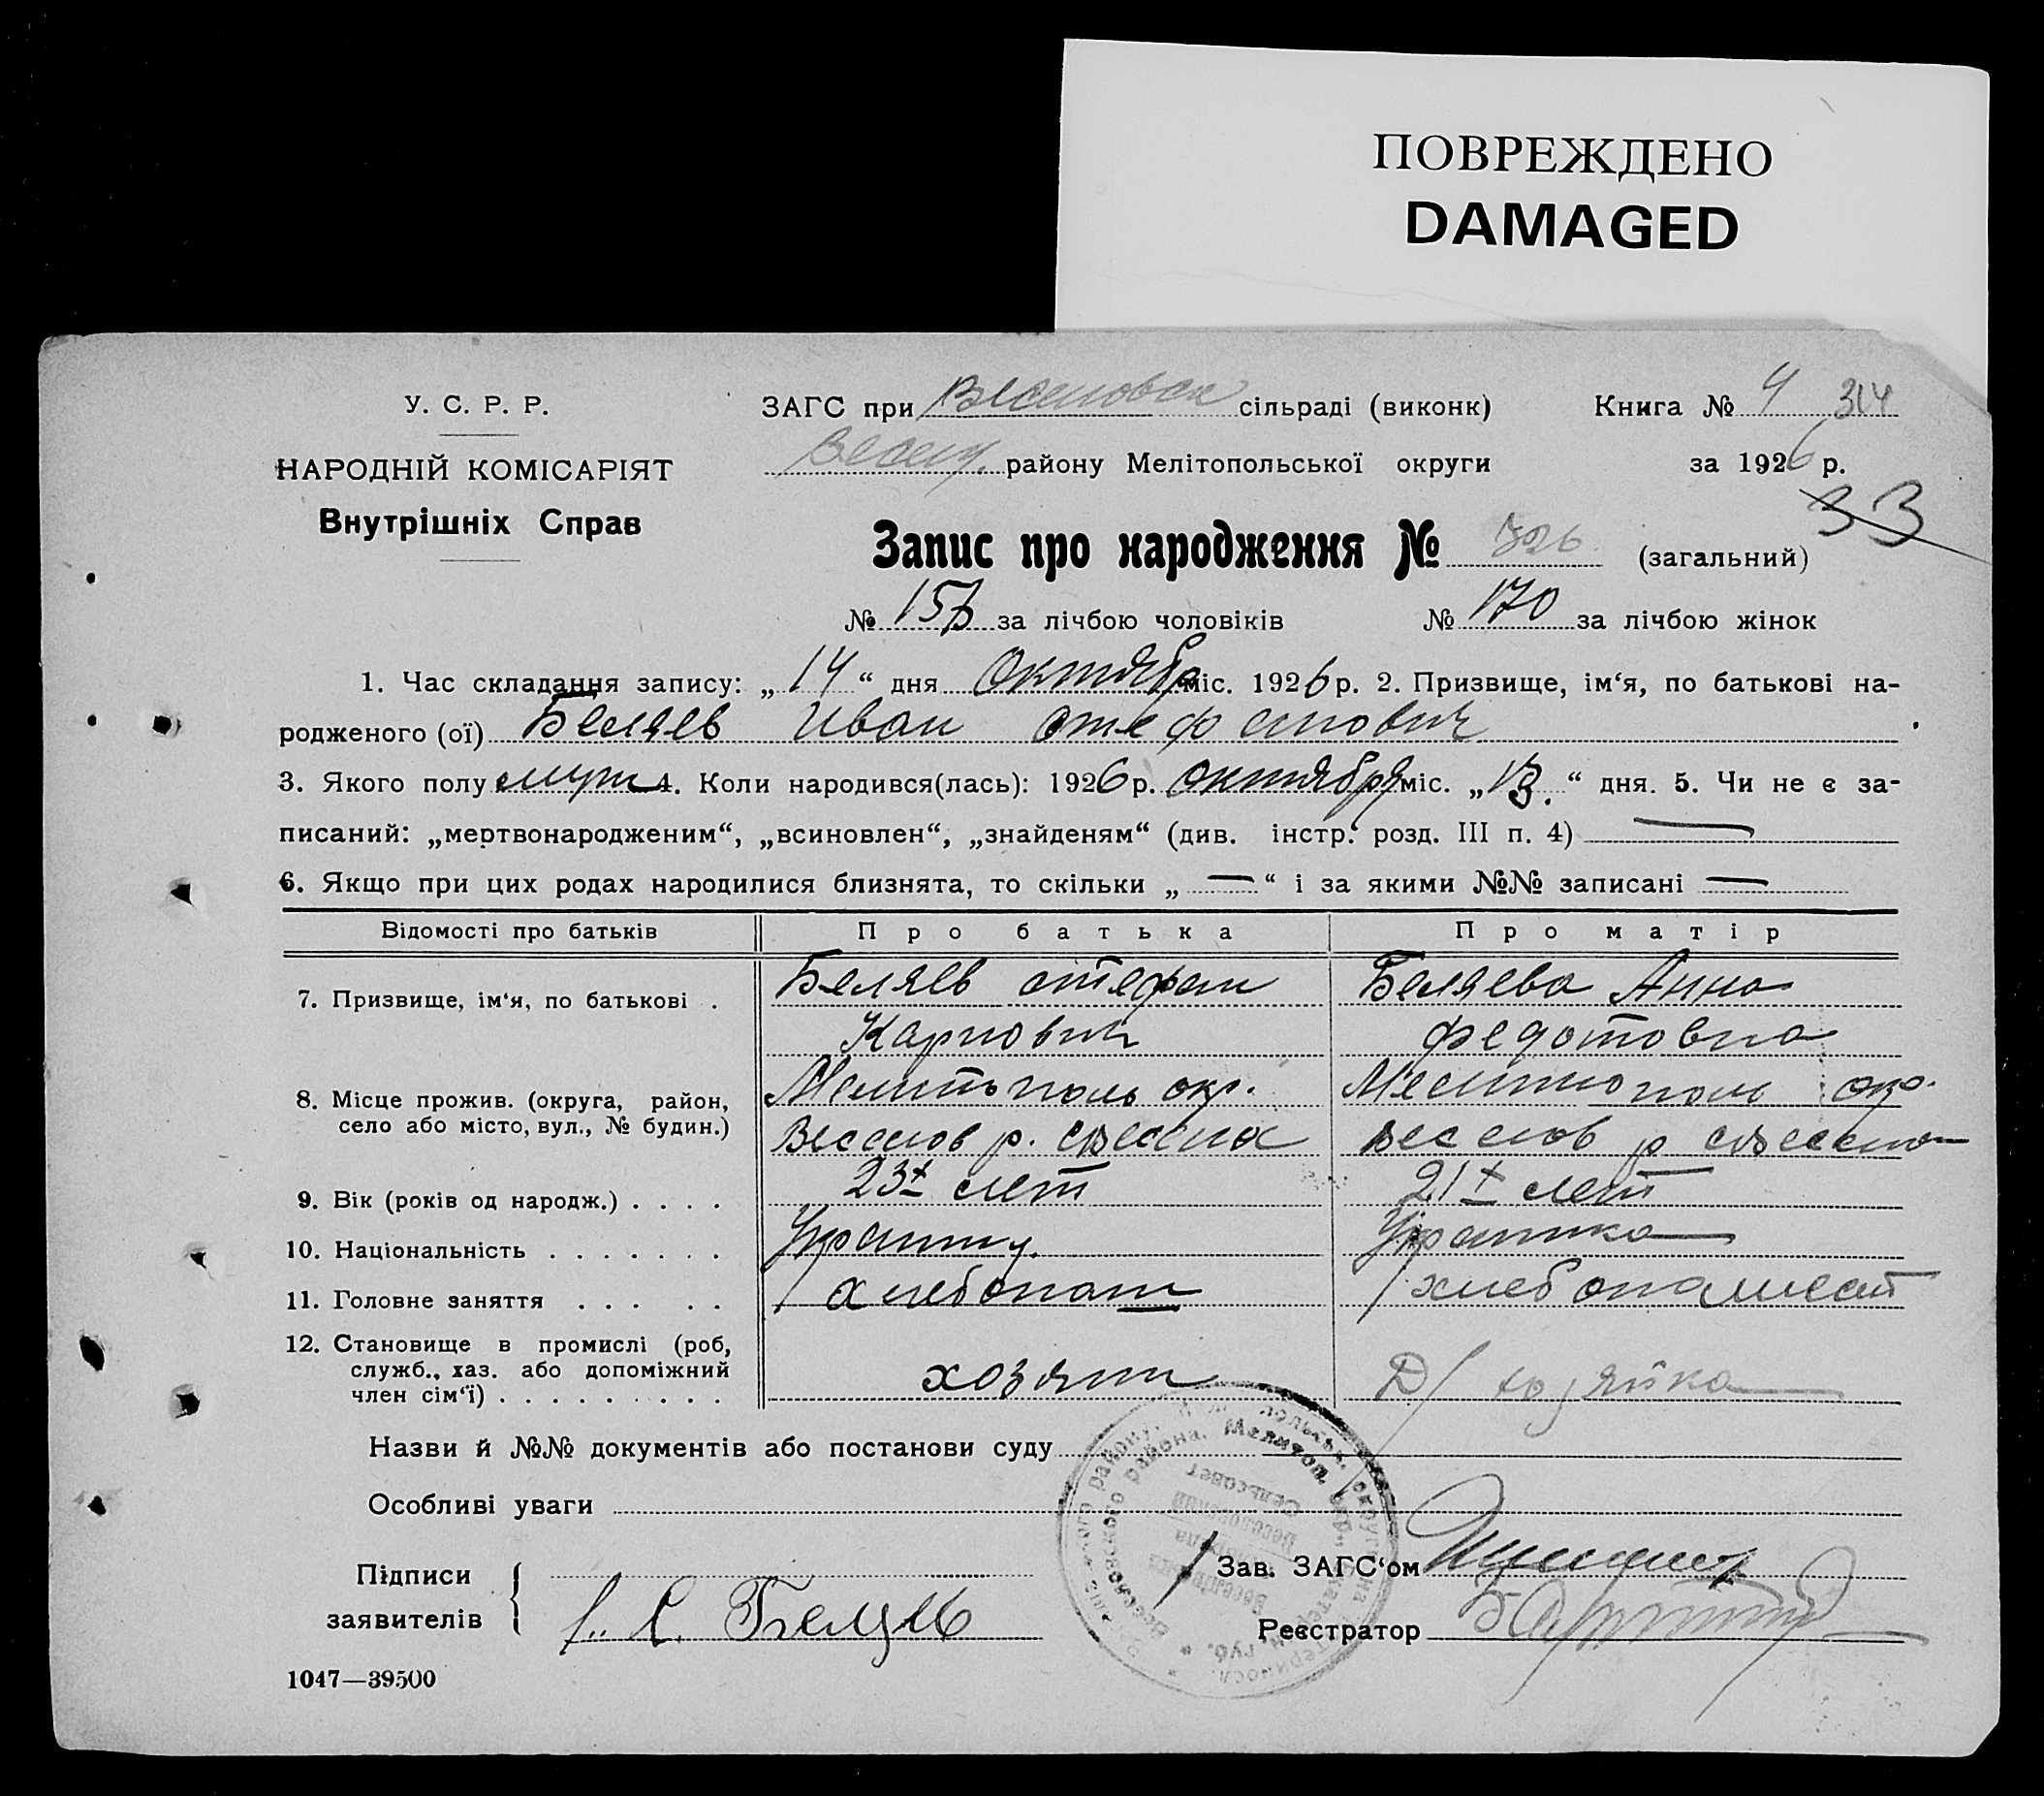 ПОВРЕЖДЕНО
DAMAGED
У. С. Р. Р.
НАРОДНІЙ КОМІСАРІЯТ
Внутрішніх Справ
ЗАГС при Веселовск сільраді (виконк)
Книга № 4 314
Весел. району Мелітопольської округи
за 1926 р.
33
Запис про народження № 326 (загальний)
№ 156 за лічбою чоловіків № 170 за лічбою жінок
1. Час складання запису: „14“ дня Октября міс. 1926 р. 2. Призвище, ім‘я, по батькові на-
родженого (ої) Беляев Иван Стефанович
3. Якого полу муж 4. Коли народився(лась): 1926 р. октября міс. „13.“ дня. 5. Чи не є за-
писаний: „мертвонародженим“, „всиновлен“, „знайденям“ (див. інстр. розд. III п. 4) —
6. Якщо при цих родах народилися близнята, то скільки „—“ і за якими №№ записані —
Відомості про батьків Про батька Про матір
7. Призвище, ім‘я, по батькові .
Беляев Стефан
Карпович
Беляева Анна
Федотовна
8. Місце прожив. (округа, район,
село або місто, вул., № будин.)
Мелитополь окр.
Веселов р.
Мелитополь окр.
Веселов р
9. Вік (років од народж.) . . . . 23 лет 21 лет
10. Національність . . . . . . . Украинц. Украинка
11. Головне заняття . . . . . хлебопаш хлебопашест
12. Становище в промислі (роб,
служб., хаз. або допоміжний
член сім‘ї) . . . . . . . . .
хозяин Д/хозяйка
Назви й №№ документів або постанови суду
Особливі уваги
Підписи
заявителів
С. Беляев
Зав. ЗАГС‘ом
Реєстратор
Веселовского района. Мелитоп. окр.
Сельсовет
1047—39500